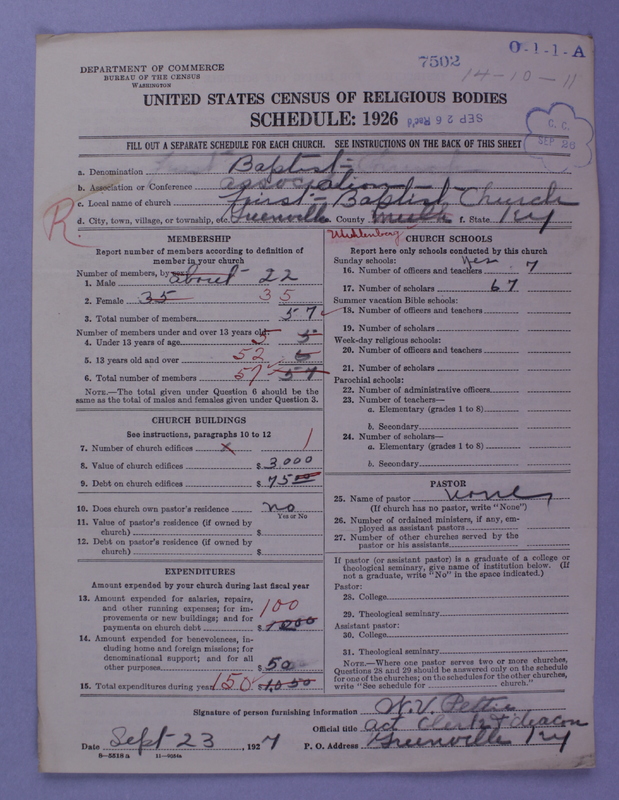 7502
O-1-1-A
14-10-11
DEPARTMENT OF COMMERCE
BUREAU OF THE CENSUS
WASHINGTON
UNITED STATES CENSUS OF RELIGIOUS BODIES
SCHEDULE: 1926
SEP 26 Rec'd
C. C.
SEP 26
FILL OUT A SEPARATE SCHEDULE FOR EACH CHURCH. SEE INSTRUCTIONS ON THE BACK OF THIS SHEET
a. Denomination Baptist
b. Association or Conference association
c. Local name of church First Baptist Church
d. City, town, village, or township, etc. Greenville e. County f. State Ky
R
Muhlenberg
MEMBERSHIP
Report number of members according to definition of
member in your church
Number of members, by sex:
1. Male about 22
2. Female 35 35
3. Total number of members 57
Number of members under and over 13 years old:
4. Under 13 years of age 5 5
5. 13 years old and over 52
6. Total number of members 57 57
NOTE.—The total given under Question 6 should be the
same as the total of males and females given under Question 3.
CHURCH BUILDINGS
See instructions, paragraphs 10 to 12
7. Number of church edifices x 1
8. Value of church edifices $ 3,000
9. Debt on church edifices $ 75 00
10. Does church own pastor's residence no
Yes or No
11. Value of pastor's residence (if owned by
church) $
12. Debt on pastor's residence (if owned by
church) $
EXPENDITURES
Amount expended by your church during last fiscal year
13. Amount expended for salaries, repairs,
and other running expenses; for im-
provements or new buildings; and for
payments on church debt $ 100
14. Amount expended for benevolences, in-
cluding home and foreign missions; for
denominational support; and for all
other purposes $ 50
15. Total expenditures during year 150 $1,050
CHURCH SCHOOLS
Report here only schools conducted by this church
Sunday schools: Yes
16. Number of officers and teachers 7
17. Number of scholars 67
Summer vacation Bible schools:
18. Number of officers and teachers
19. Number of scholars
Week-day religious schools:
20. Number of officers and teachers
21. Number of scholars
Parochial schools:
22. Number of administrative officers
23. Number of teachers—
a. Elementary (grades 1 to 8)
b. Secondary
24. Number of scholars—
a. Elementary (grades 1 to 8)
b. Secondary
PASTOR
25. Name of pastor none
(If church has no pastor, write "None")
26. Number of ordained ministers, if any, em-
ployed as assistant pastors
27. Number of other churches served by the
pastor or his assistants
If pastor (or assistant pastor) is a graduate of a college or
theological seminary, give name of institution below. (If
not a graduate, write "No" in the space indicated.)
Pastor:
28. College
29. Theological seminary
Assistant pastor:
30. College
31. Theological seminary
NOTE.—Where one pastor serves two or more churches,
Questions 28 and 29 should be answered only on the schedule
for one of the churches; on the schedules for the other churches,
write "See schedule for church."
Signature of person furnishing information W. V. Pettie
Official title act Clerk & deacon
Date Sept 23, 1927 P. O. Address Greenville Ky
8-5518 a 11-9084a